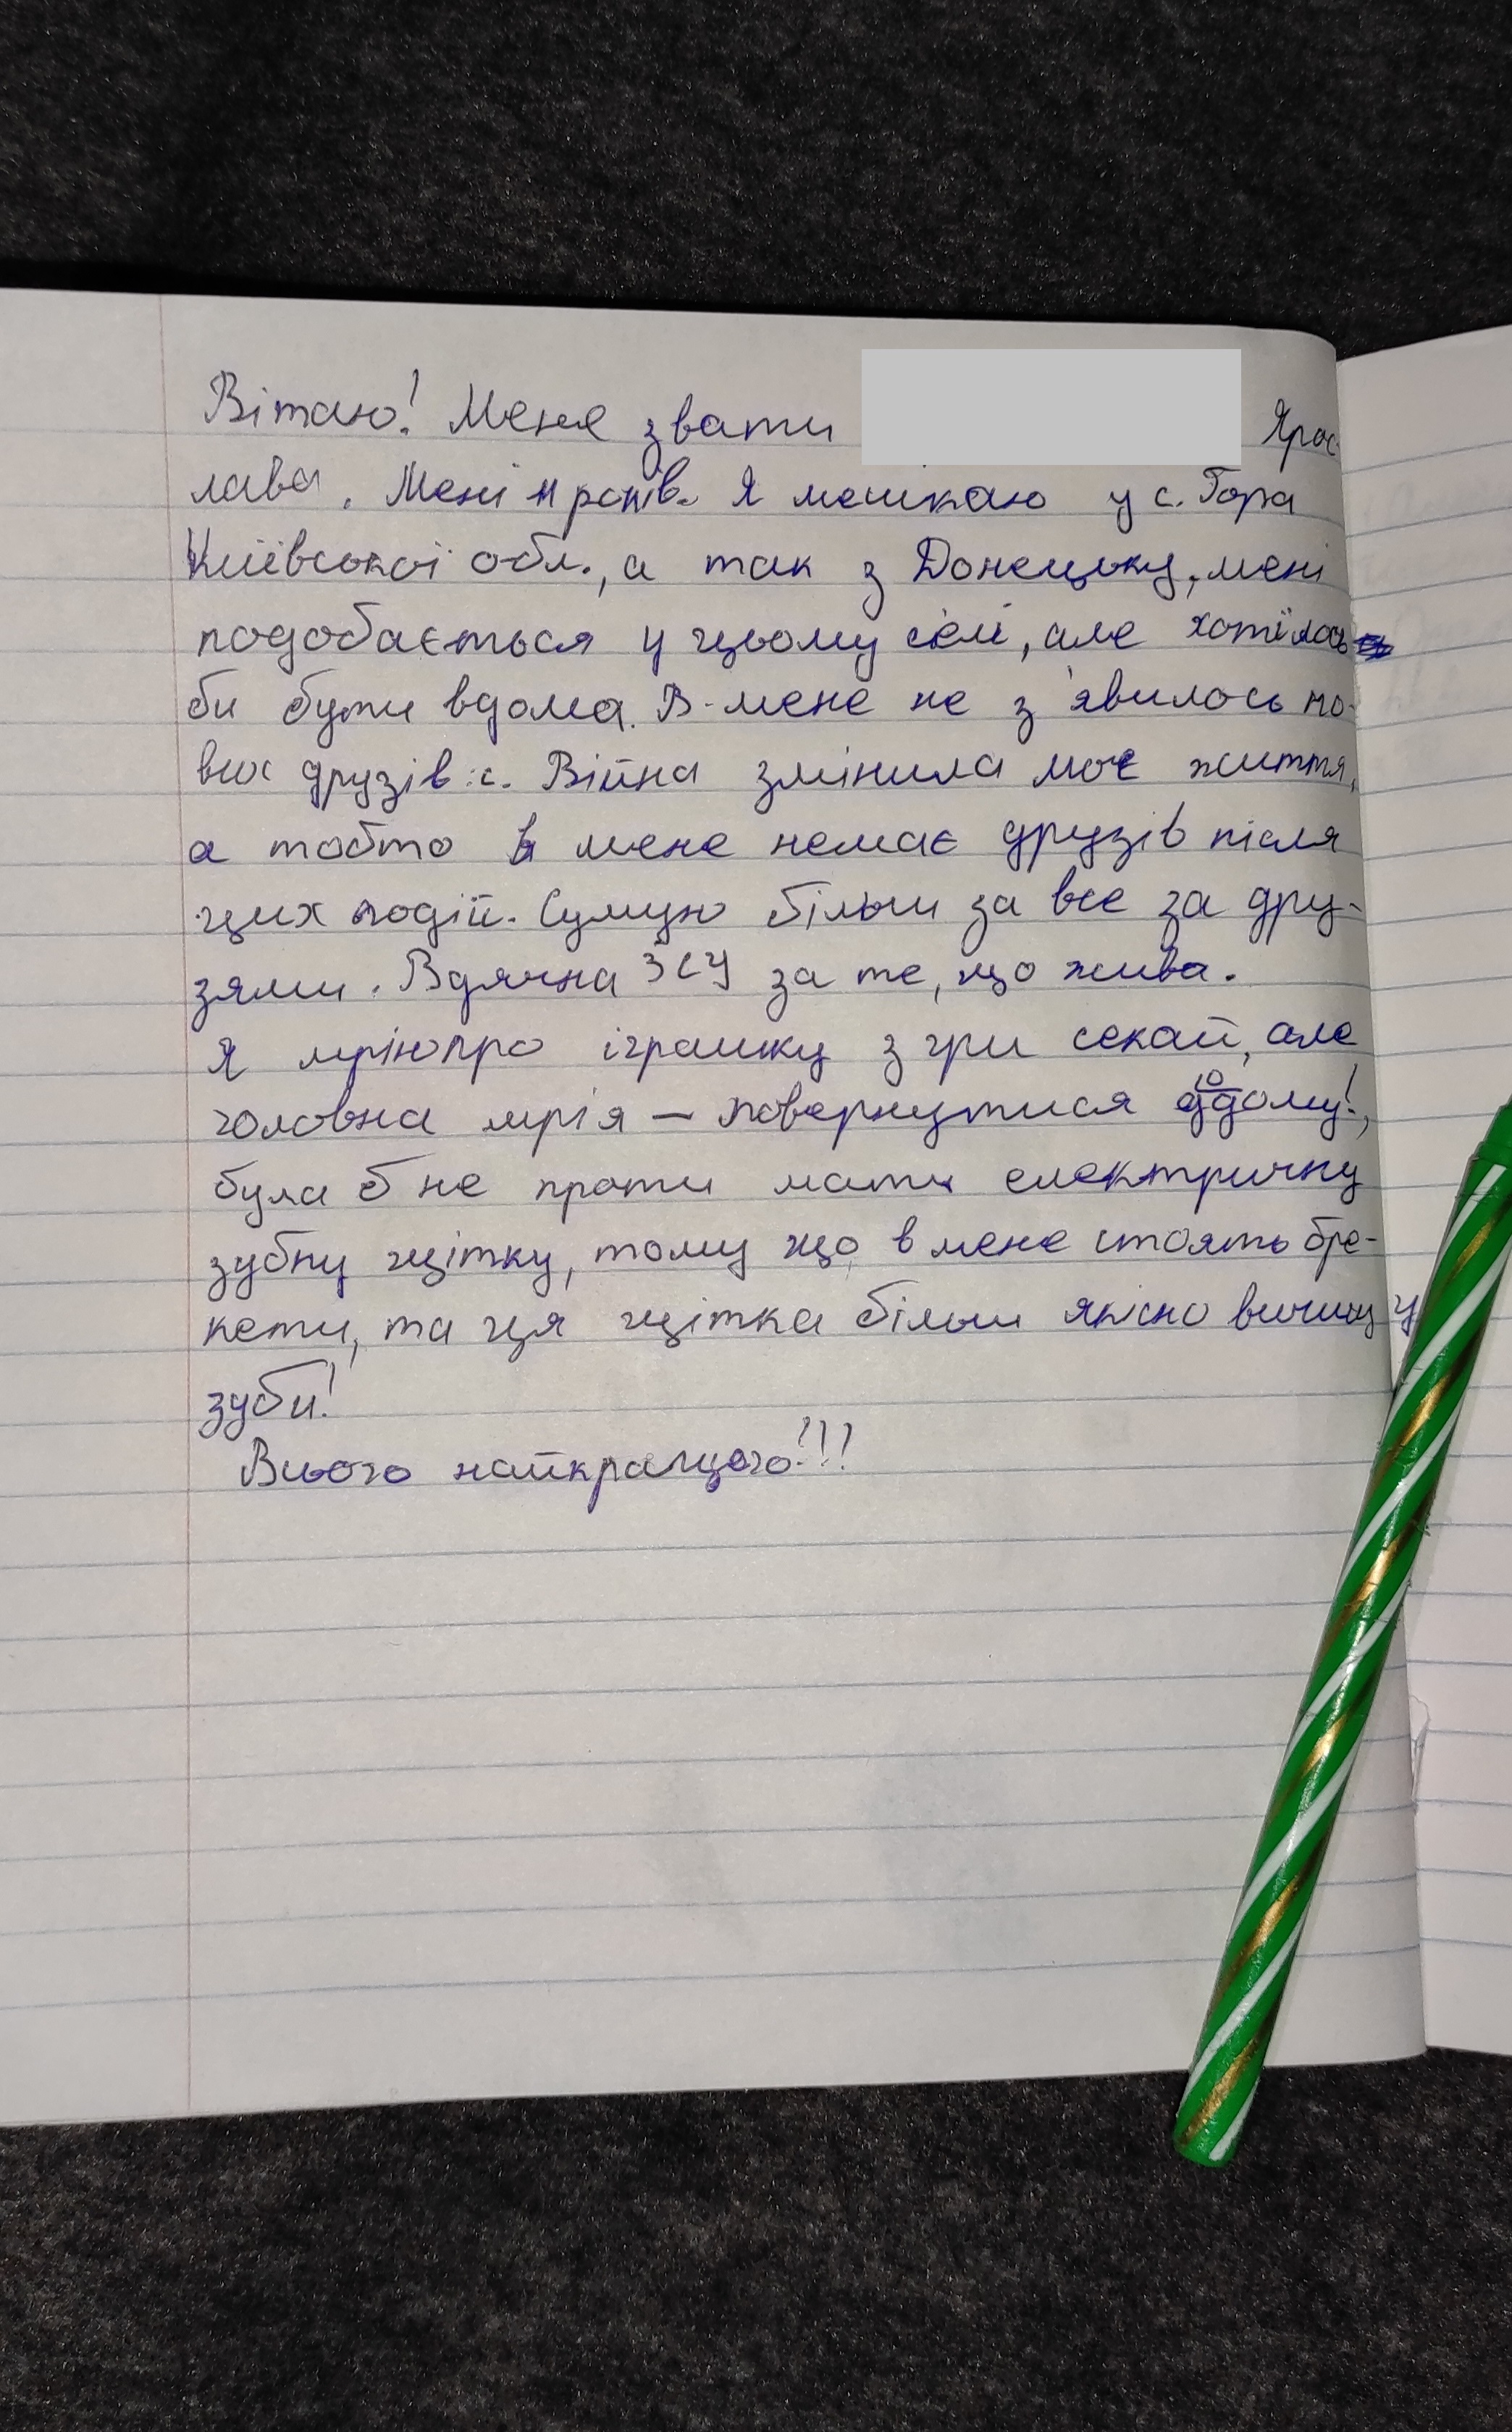 Вітаю! Мене звати Ярос-
лава. Мені 11 років. Я мешкаю у с. Гора
Київської обл., а так з Донецьку, мені
подобається у цьому селі, але хотілось
би бути вдома. В мене не з'явилось но-
вих друзів :с. Війна змінила моє життя,
а тобто в мене немає друзів після
цих подій. Сумую більш за все за дру-
зями. Вдячна ЗСУ за те, що жива.
Я мрію про іграшку з гри секай, але
головна мрія — повернутися додому!,
була б не проти мати електричну
зубну щітку, тому що в мене стоять бре-
кети, та ця щітка більш якісно
зуби!
Всього найкращого!!!